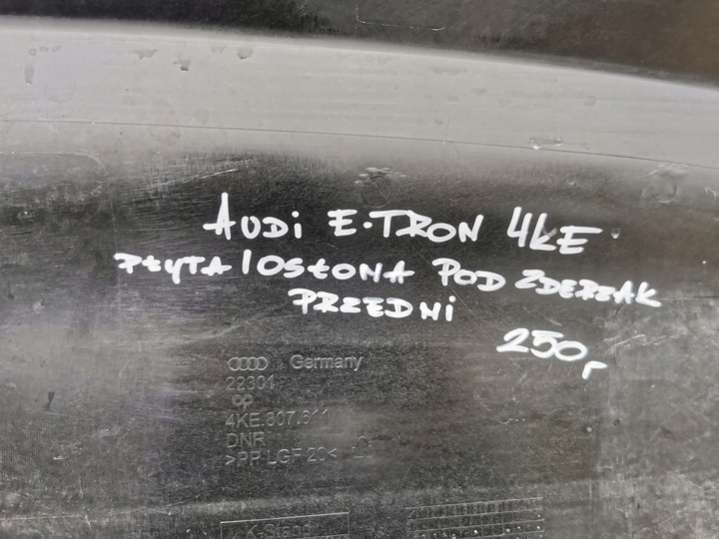 AUDI E-TRON 4KE
PŁYTA/OSŁONA POD ZDERZAK
PRZEDNI
250,-
Germany
22301
4KE.807.611
DNR
>PP LGF 20<